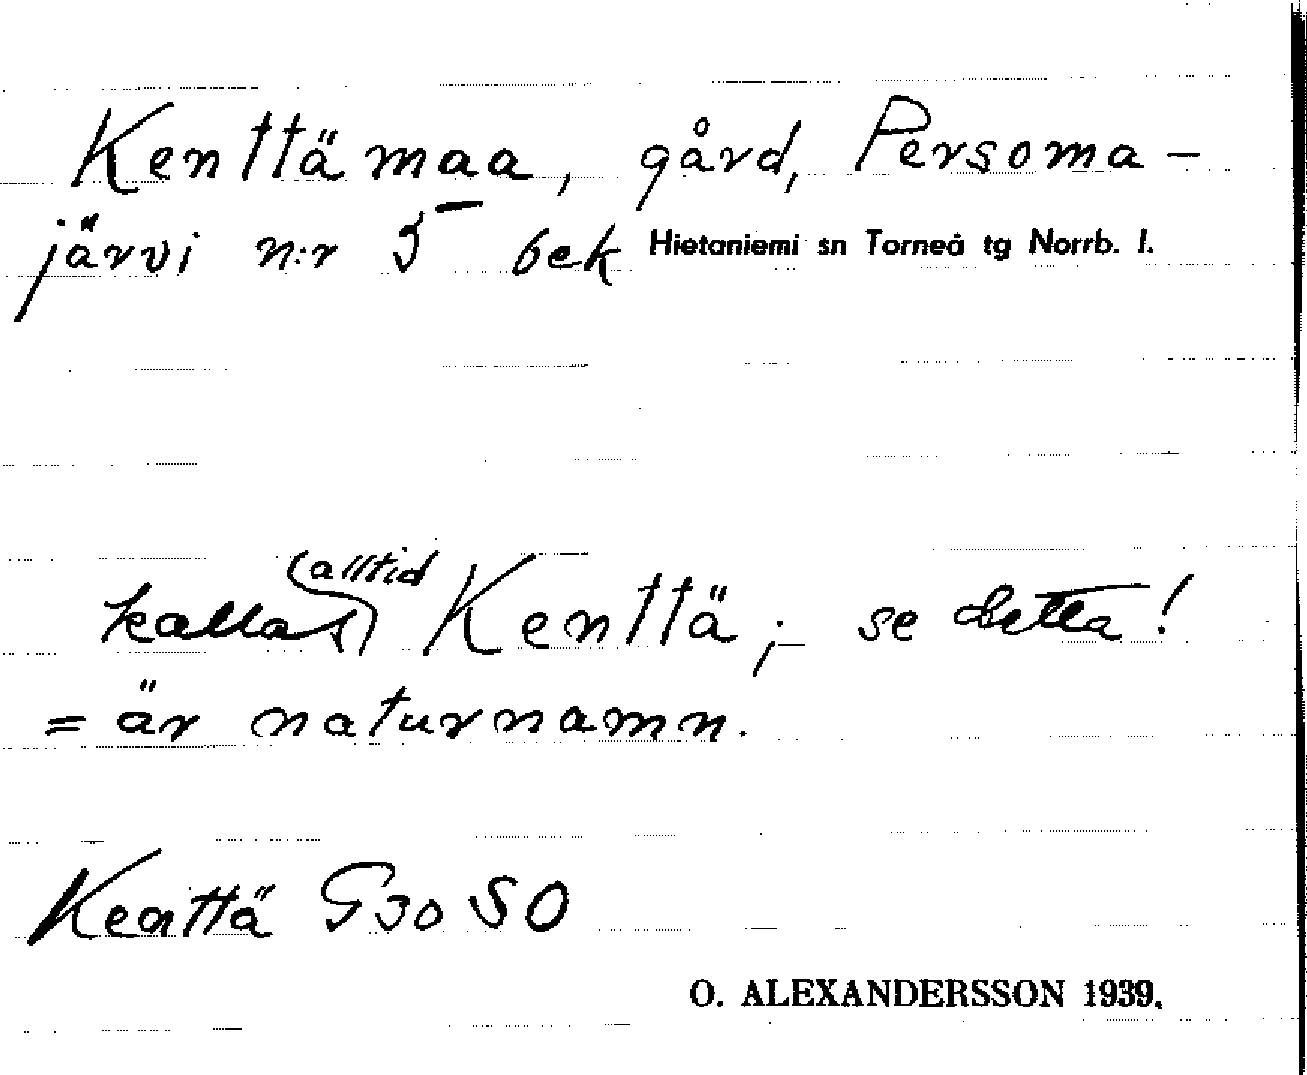 Kenttämaa, gård, Persoma-
järvi n:r 5 bek Hietaniemi sn Torneå tg Norrb. l.
kallas (alltid) Kenttä;- se detta!
= är naturnamn.
Kenttä G30 SO
O. ALEXANDERSSON 1939.